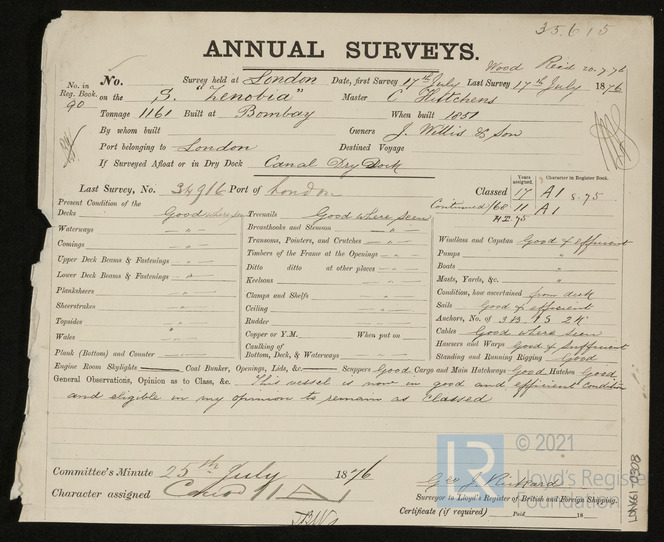 35615
ANNUAL SURVEYS.
Wood Rec'd 20.7.76
No. in Reg. Book. 90
No. Survey held at London Date, first Survey 17th July Last Survey 17th July 1876
on the S. "Zenobia" Master C Hutchens
Tonnage 1161 Built at Bombay When built 1851
By whom built Owners J. Willis & Son
Port belonging to London Destined Voyage
If Surveyed Afloat or in Dry Dock Canal Dry Dock
Last Survey, No. 34916 Port of London
Years assigned. Character in Register Book.
Classed 17 A1 8.75
Continued/68 11 A1
Present Condition of the
Decks Good where seen Treenails Good where seen
Waterways - " - Breasthooks and Stemson - " -
Comings - " - Transoms, Pointers, and Crutches - " - Windlass and Capstan Good & efficient
Timbers of the Frame at the Openings - " - Pumps "
Upper Deck Beams & Fastenings - " - Ditto ditto at other places - " - Boats "
Lower Deck Beams & Fastenings - " - Keelsons - " - Masts, Yards, &c. "
Planksheers " Clamps and Shelfs - " - Condition, how ascertained from deck
Sheerstrakes " Ceiling - " - Sails Good & efficient
Topsides " Rudder - " - Anchors, No. of 3B. 1S 2K
Wales " Copper or Y.M. When put on Cables Good where seen
Plank (Bottom) and Counter - " - Caulking of Bottom, Deck, & Waterways - " - Hawsers and Warps Good & Sufficient
Standing and Running Rigging Good
Engine Room Skylights Coal Bunker, Openings, Lids, &c. Scuppers Good Cargo and Main Hatchways Good Hatches Good
General Observations, Opinion as to Class, &c. This vessel is now in good and efficient condition
and eligible in my opinion to remain as classed
Committee's Minute 25th July 1876
Character assigned
Geo J.
Surveyor to Lloyd's Register of British and Foreign Shipping.
Certificate (if required) Paid 18
© 2021
Lloyd's Register
Foundation
LR
LON661-0308